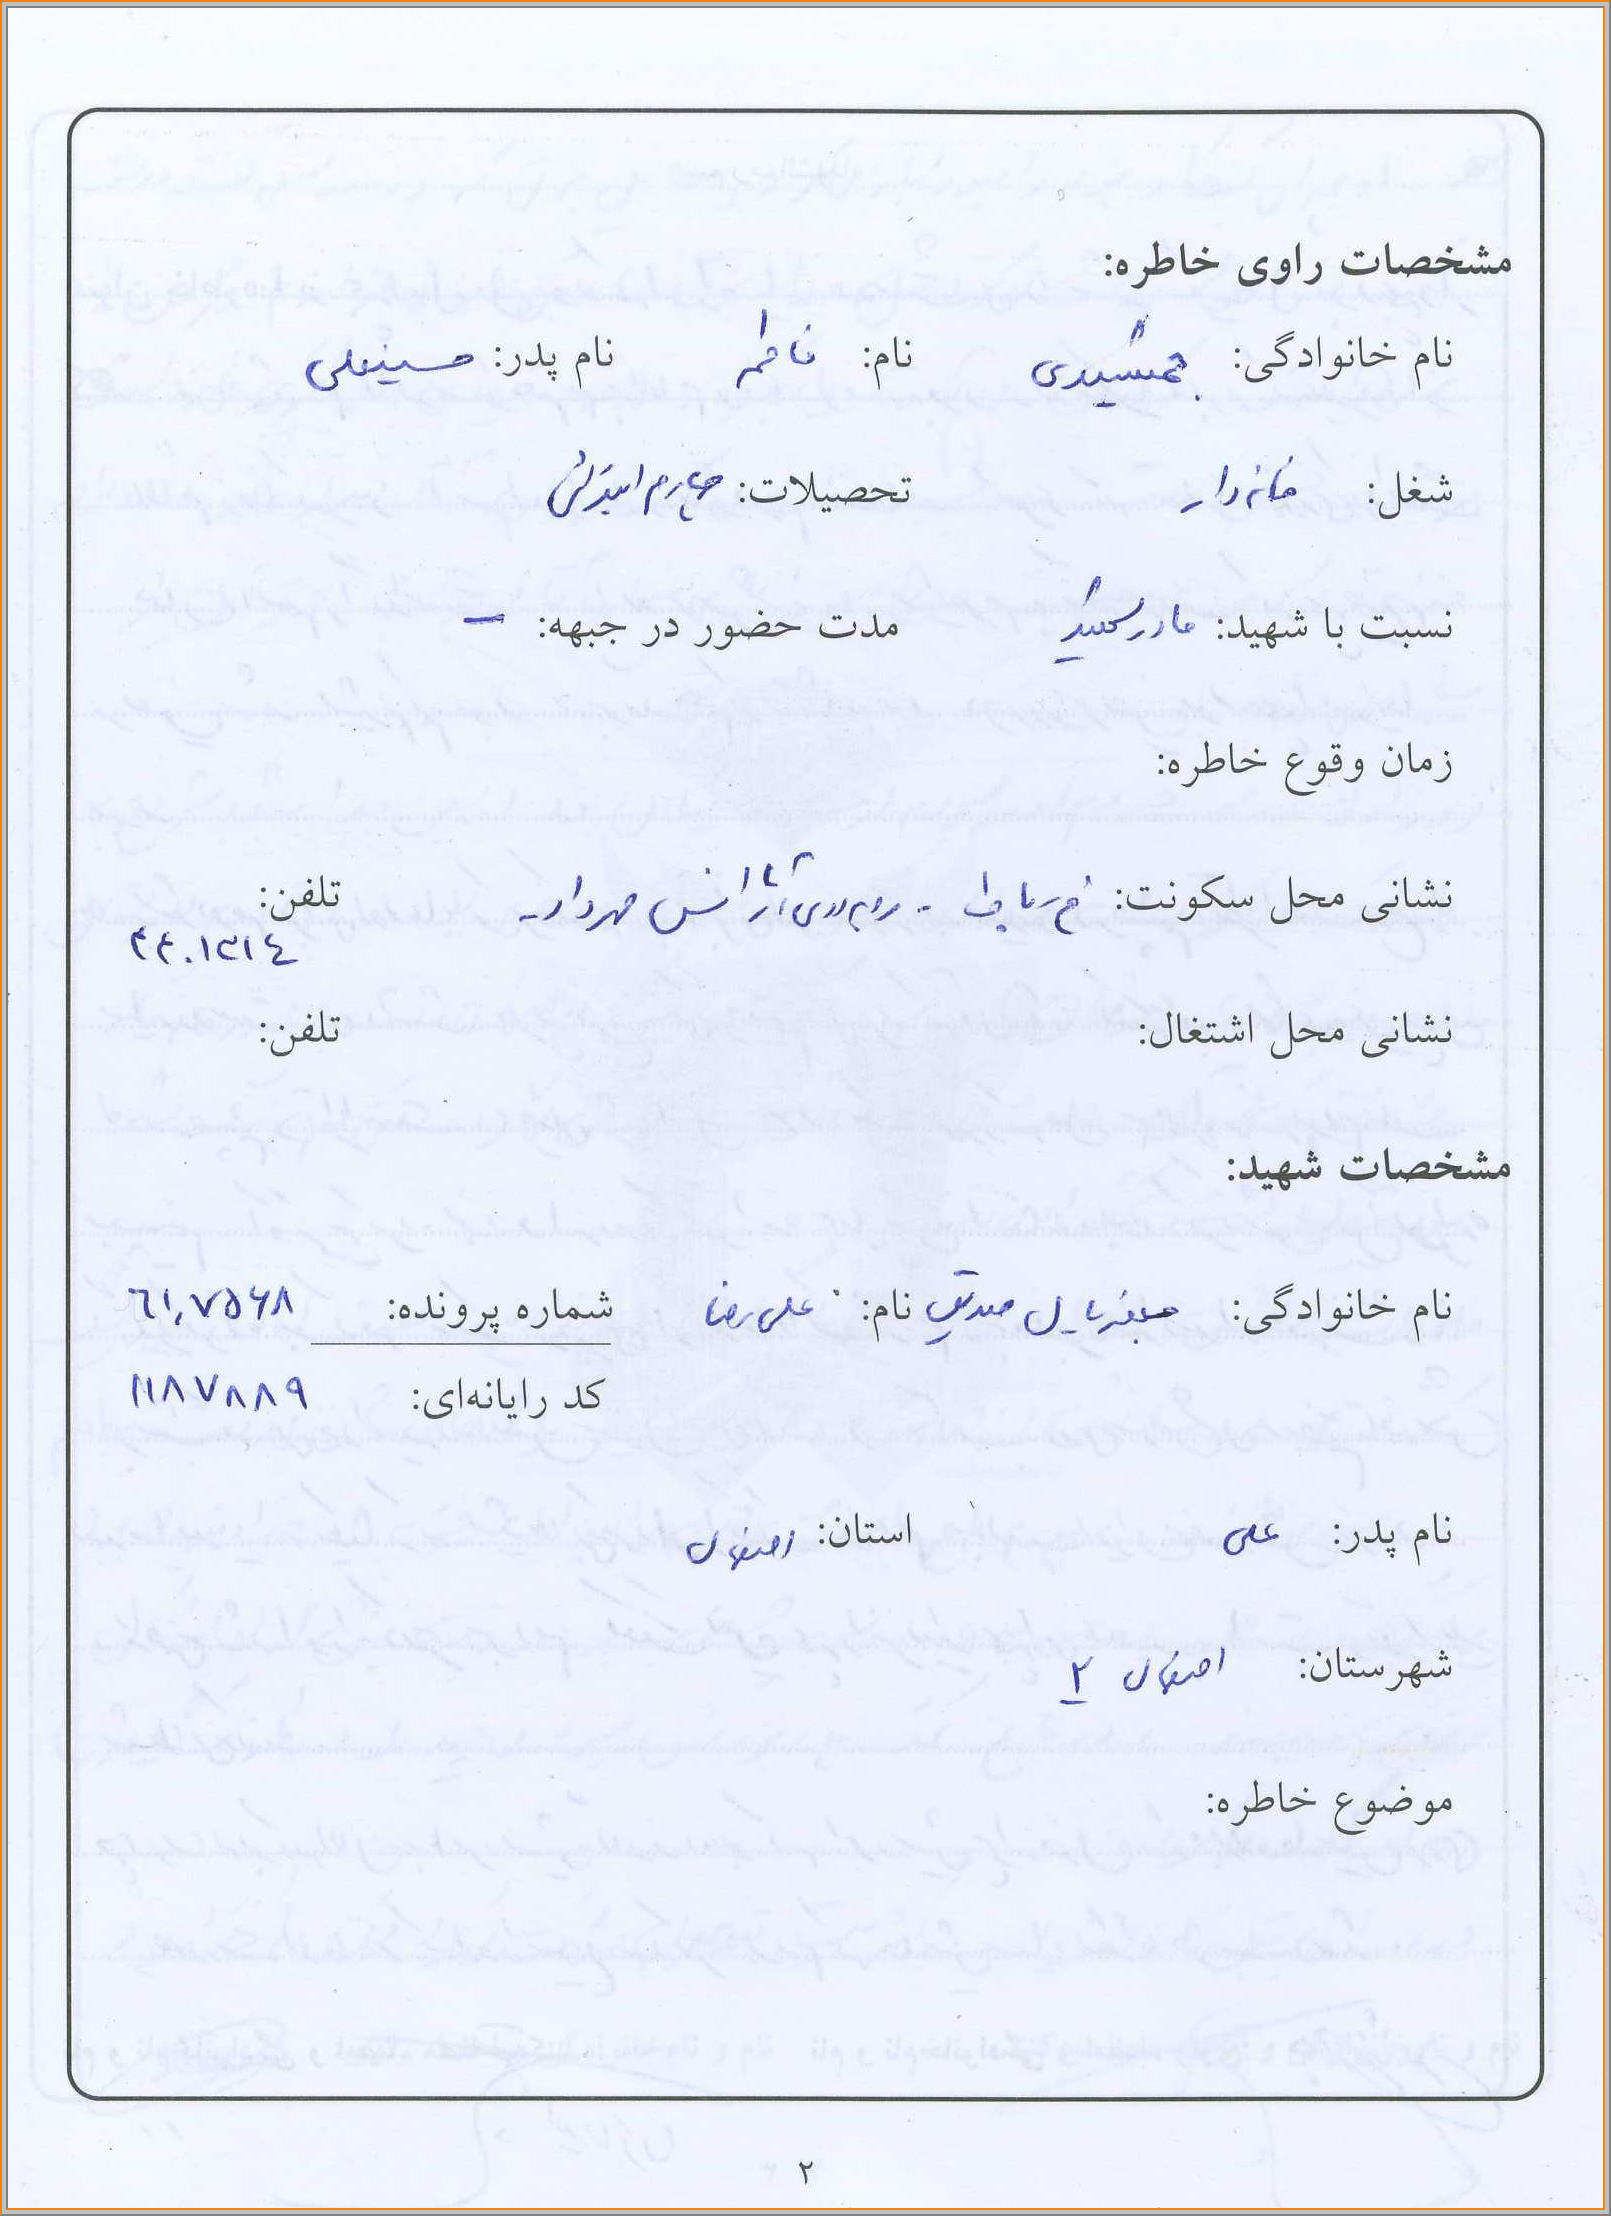 مشخصات راوی خاطره:
نام خانوادگی: جمشیدی نام: فاطمه نام پدر: حسینعلی
شغل: خانه دار تحصیلات: چهارم ابتدائی
نسبت با شهید: مادر شهید مدت حضور در جبهه: –
زمان وقوع خاطره:
نشانی محل سکونت: - روبروی آژانس مهرداد - تلفن:
۴۴۰۱۳۱۴
نشانی محل اشتغال: تلفن:
مشخصات شهید:
نام خانوادگی: صدیق نام: علی رضا شماره پرونده: ۶۱۰۷۵۶۸
کد رایانه‌ای: ۱۱۸۷۸۸۹
نام پدر: علی استان: اصفهان
شهرستان: اصفهان ۲
موضوع خاطره:
۲